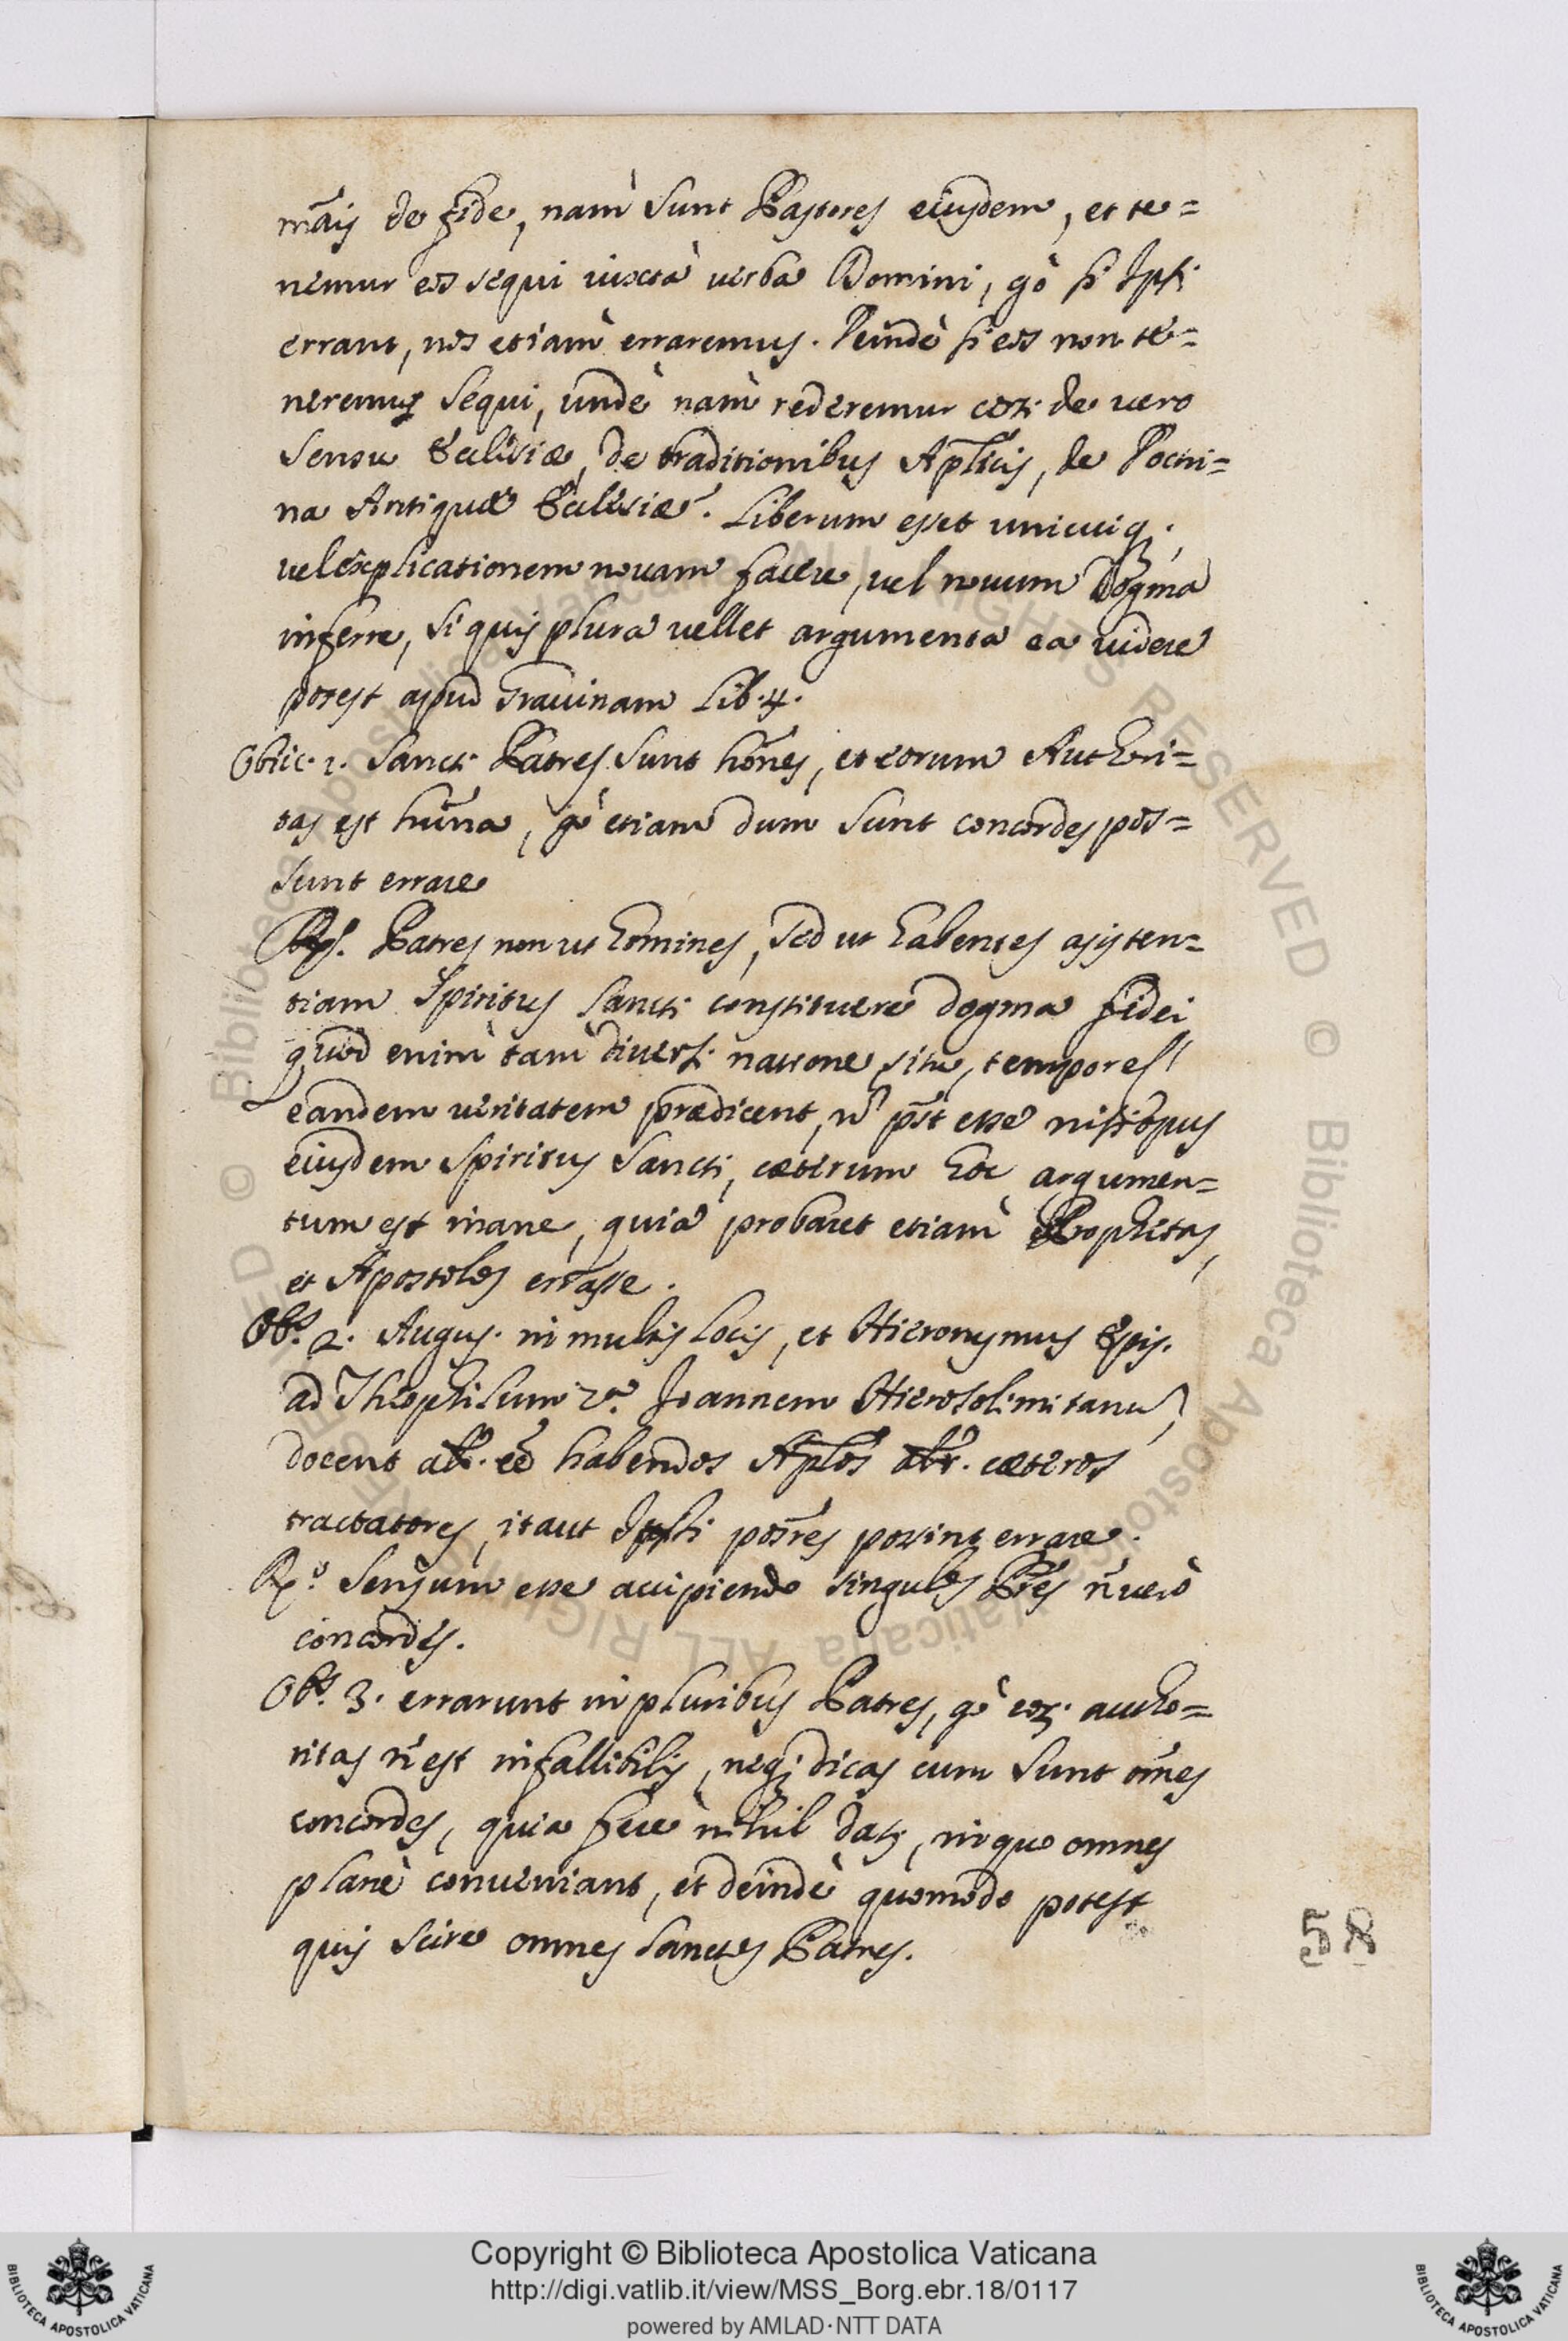 mãis de fide, nam sunt Pastores eiusdem, et te=
nemur eos sequi iuxta uerba Domini, gò si Ipsi
errant, nos etiam erraremus. Deinde si eos non te=
neremur sequi, unde nam rederemur certi de uero
sensu Ecclesiæ, de traditionibus Aplicis, de Doctri=
na Antiquæ Ecclesiæ. Liberum esset unicuiq;
uel explicationem nouam facere, uel nouum Dogma
inferre, si quis plura uellet argumenta ea uidere
potest apud Grauinam Lib. 4.
Obiic. 1. Sancti Patres sunt hões, et eorum Authori=
tas est hũna, gò etiam dum sunt concordes pos=
sunt errare
Rs. Patres non ut homines, sed ut habentes asisten=
tiam Spiritus Sancti constituere dogma fidei
quod enim tam diuersi natione, situ, tempore
eandem ueritatem prædicent, ñ põt esse nisi opus
eiusdem Spiritus Sancti, cæterum hoc argumen=
tum est inane, quia probaret etiam Prophetas,
et Apostolos errasse.
Obs. 2. Augus. in multis locis, et Hieronymus Epis.
ad Theophilum Joannem Hierosolimitanũ,
docent alr. eẽ habendos Aplõs alr. cæteros
tractatores, itaut Ipsi possint errare.
Rs. Sensum esse accipiendo singulos Pres ñ uerò
concordes.
Obs. 3. errarunt in pluribus Patres, gò eoꝝ autho=
ritas ñ est infallibilis, neq; dicas cum sunt oẽs
concordes, quia fere nihil datꝝ, in quo omnes
planè conueniant, et deinde quomodo potest
quis scire omnes Sanctos Patres.
58
© Biblioteca Apostolica Vaticana ALL RIGHTS RESERVED © Biblioteca Apostolica Vaticana ALL RIGHTS RESERVED
Copyright © Biblioteca Apostolica Vaticana
http://digi.vatlib.it/view/MSS_Borg.ebr.18/0117
powered by AMLAD·NTT DATA
BIBLIOTECA APOSTOLICA VATICANA
BIBLIOTECA APOSTOLICA VATICANA